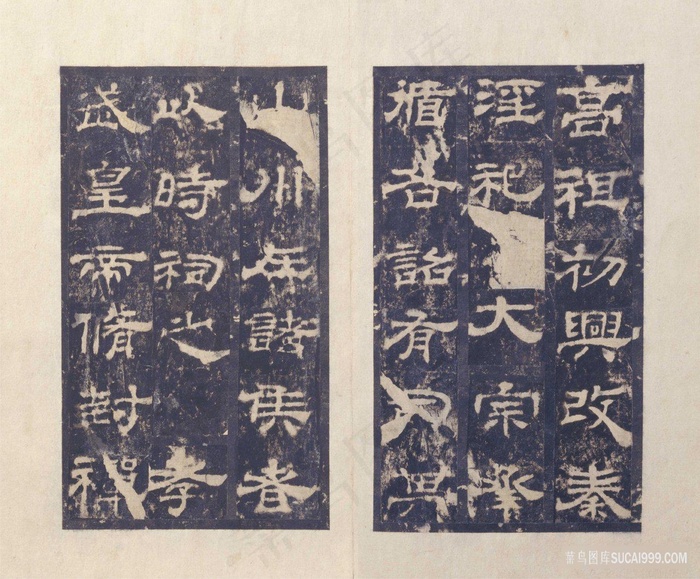 高祖初興改秦
淫祀大宗承
循各詔有司其
山川在諸侯者
以時祠之孝
武皇帝脩封禪
菜鸟图库SUCAI999.COM